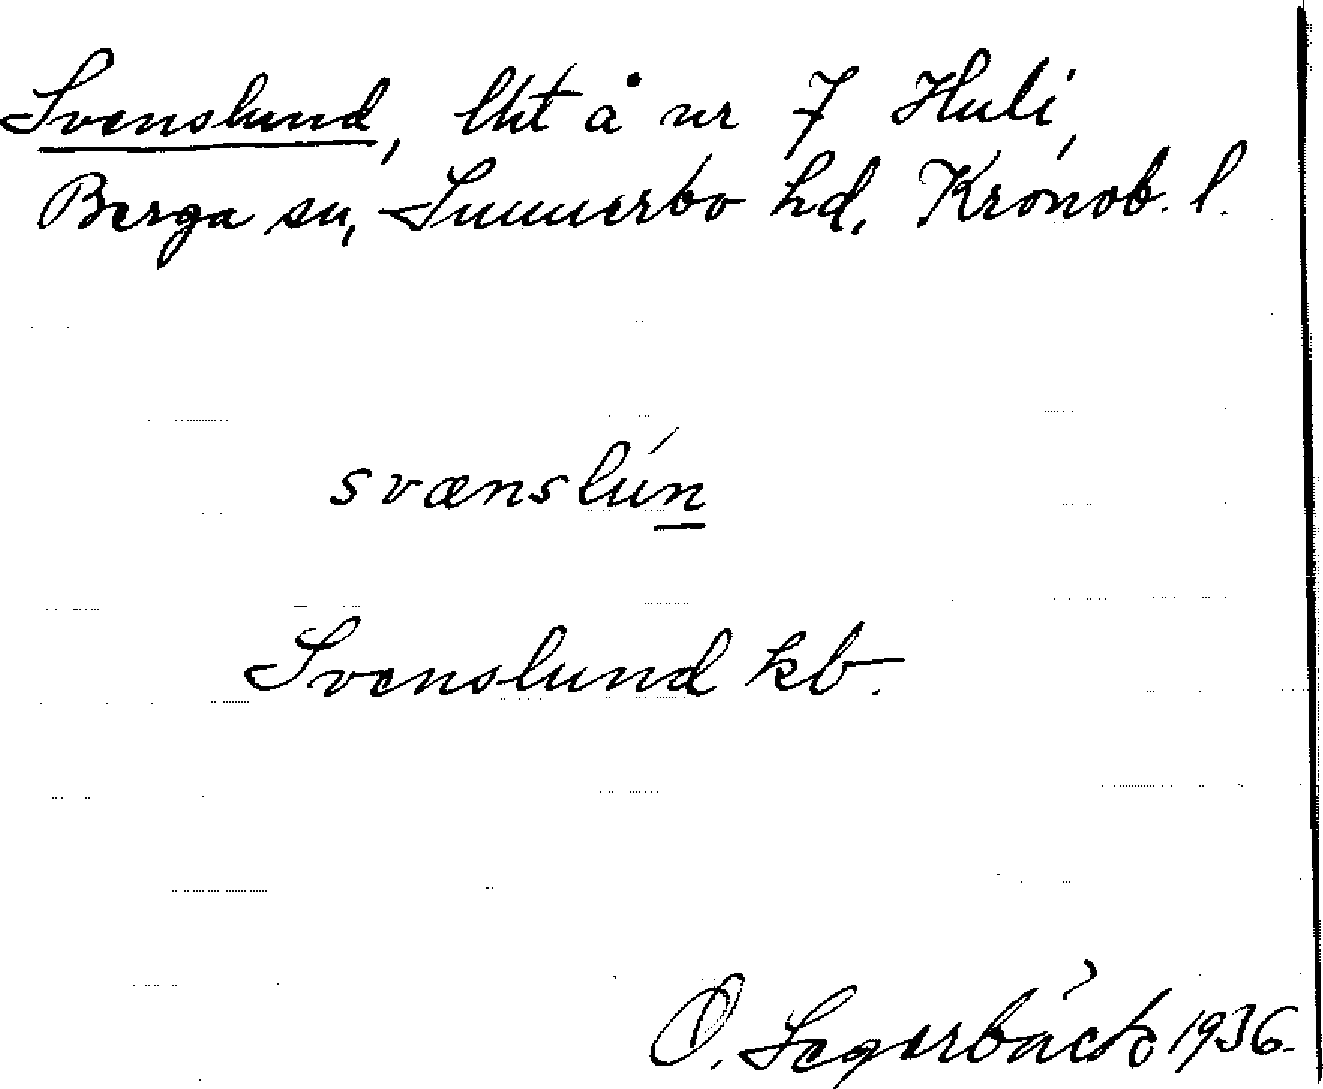 Svenslund, lht å nr 7 Huli,
Berga sn, Sunnerbo hd, Kronob. l.
svænslún
Svenslund kb.
O. Segerbäck 1936.